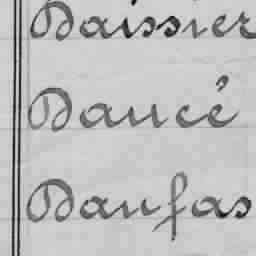 Daissier
Daucé
Daufas